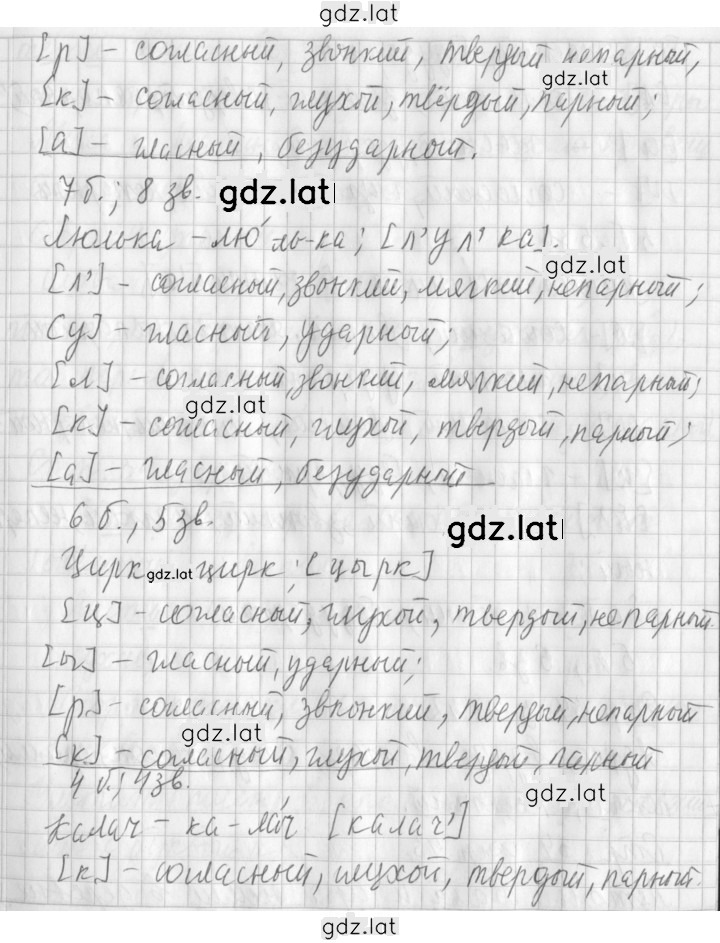 gdz.lat
[р] - согласный, звонкий, твердый непарный,
gdz.lat
[к] - согласный, глухой, твёрдый, парный;
[а] - гласный, безударный.
7 б.; 8 зв. gdz.lat
Люлька - лю́ль-ка; [л'ул'ка].
gdz.lat
[л'] - согласный, звонкий, мягкий, непарный;
[у] - гласный, ударный;
[л] - согласный, звонкий, мягкий, непарный;
gdz.lat
[к] - согласный, глухой, твердый, парный;
[а] - гласный, безударный
6 б., 5 зв. gdz.lat
Цирк gdz.lat цирк; [цырк]
[ц] - согласный, глухой, твердый, непарный
[ы] - гласный, ударный;
[р] - согласный, звпонкий, твердый, непарный
gdz.lat
[к] - согласный, глухой, твердый, парный
4 б.; 4 зв. gdz.lat
Калач - ка-ла́ч [калач']
[к] - согласный, глухой, твердый, парный.
gdz.lat